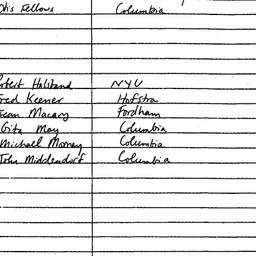 Otis Fellows Columbia
Robert Halsband NYU
Fred Keener Hofstra
Jean Macary Fordham
Gita May Columbia
Michael Mooney Columbia
John Middendorf Columbia